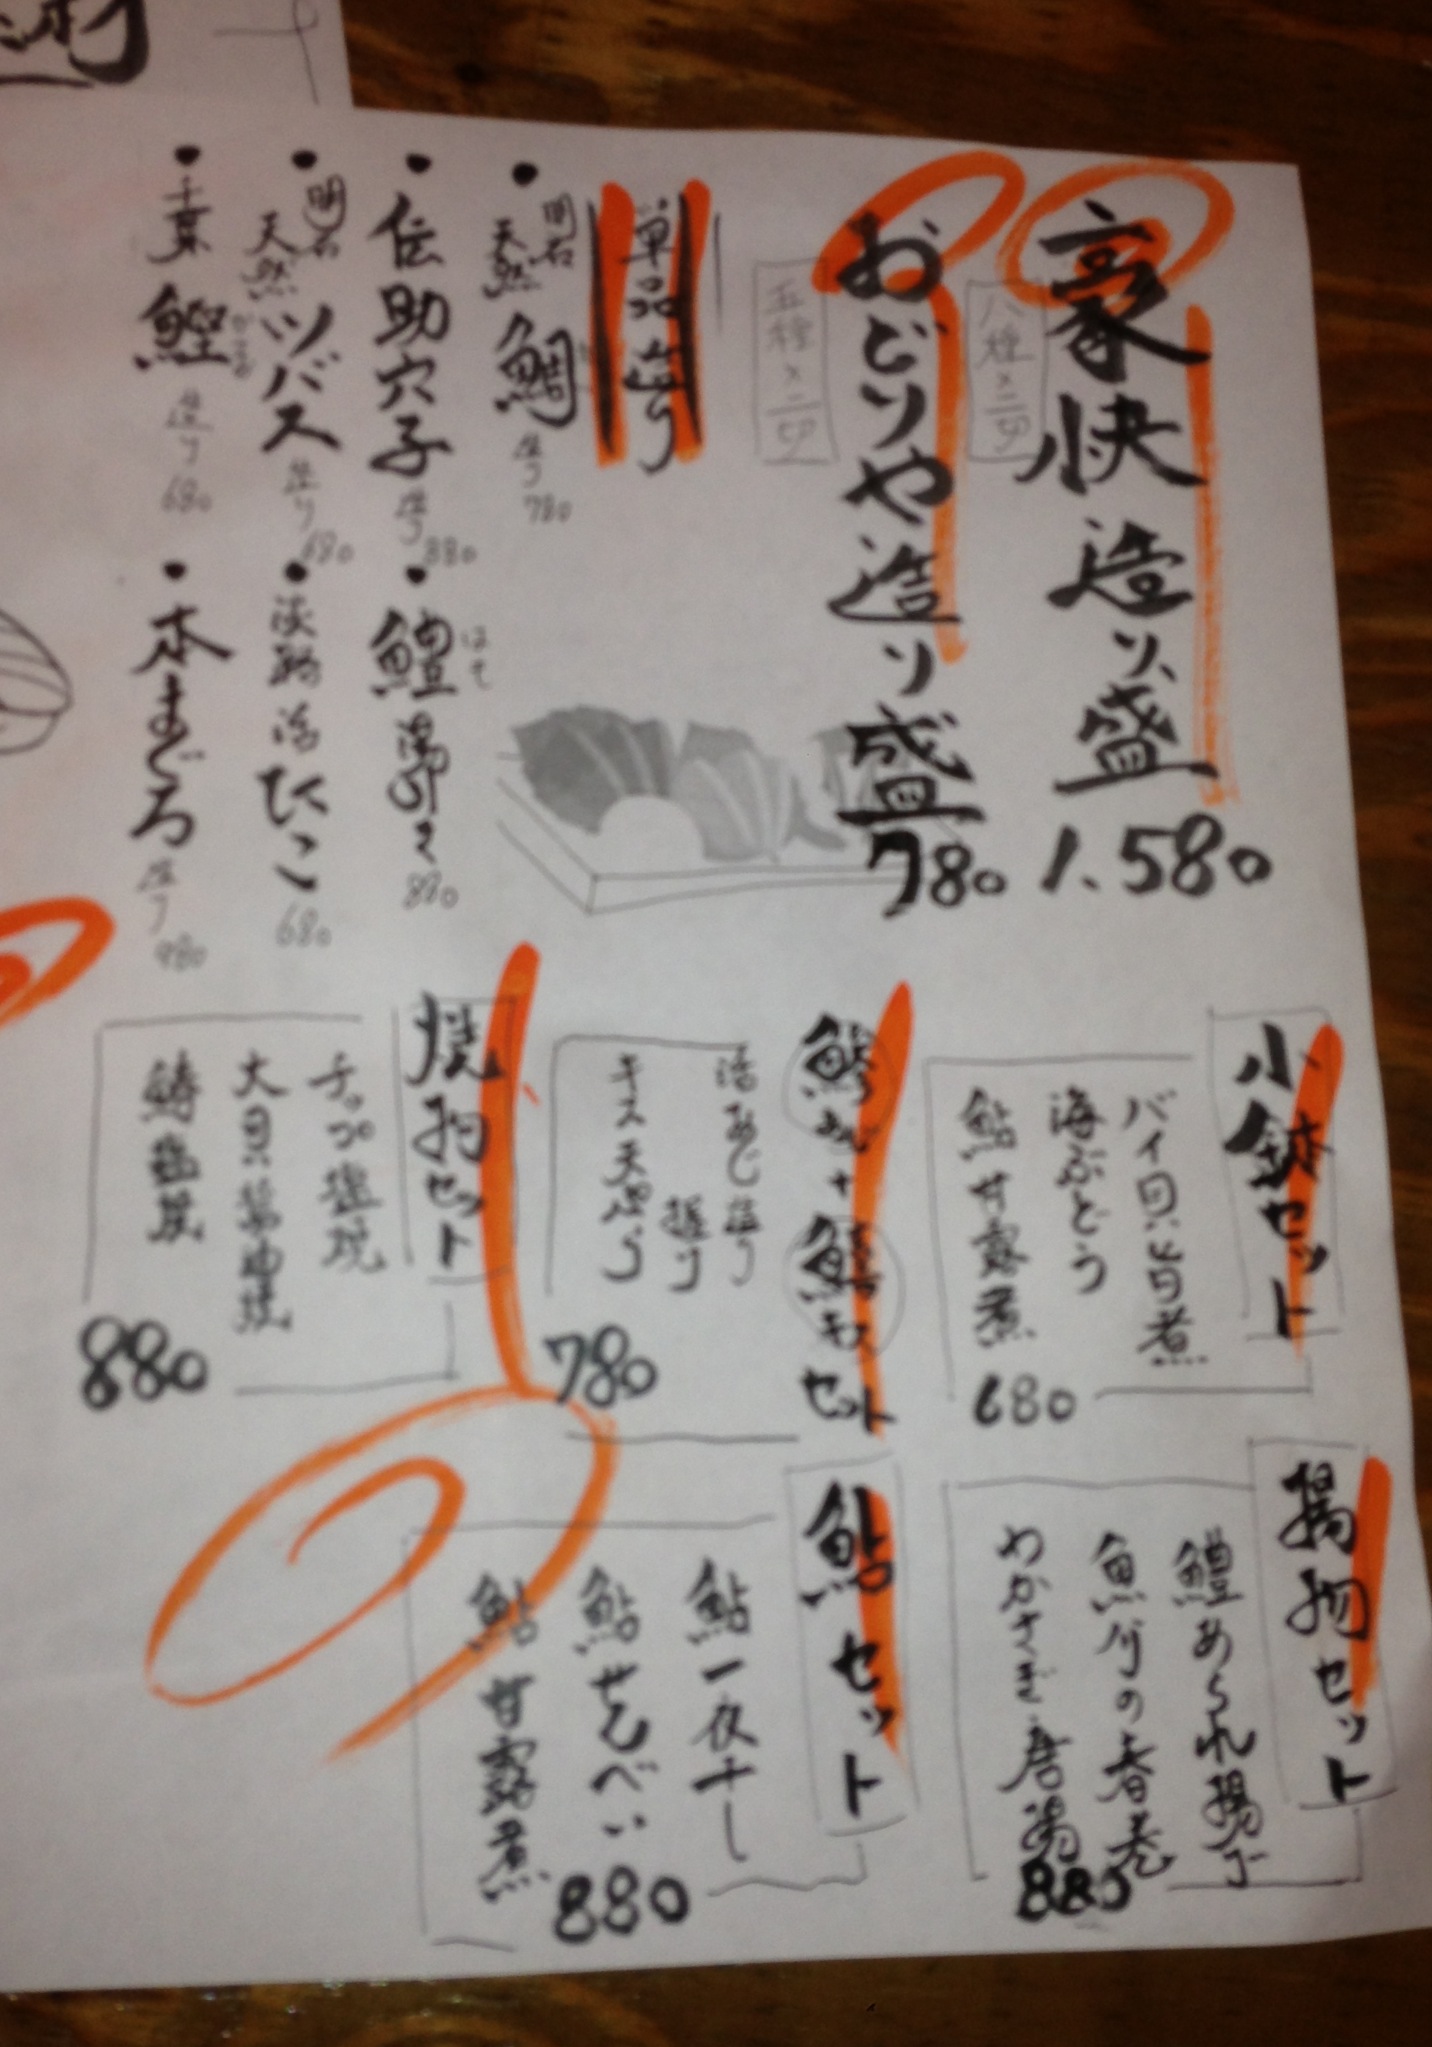 豪快造り盛
八種×二切
1.580
おどりや造り盛
五種×二切
780
単品造り
明石
天然
鯛
造り
780
伝助穴子
造り
880
鱧湯引き
はも
880
明石
天然
ツバス
造り
680
淡路活たこ
680
千葉
鰹
かつお
造り
680
本まぐろ
造り
980
小鉢セット
バイ貝旨煮
海ぶどう
鮎甘露煮
680
セット
活あじ造り
握り
キス天ぷら
780
焼物セット
チップ塩焼
大貝醤油焼
880
揚物セット
鱧あられ揚げ
の春巻
わかさぎ唐揚
880
鮎セット
鮎一夜干し
鮎せんべい
鮎甘露煮
880